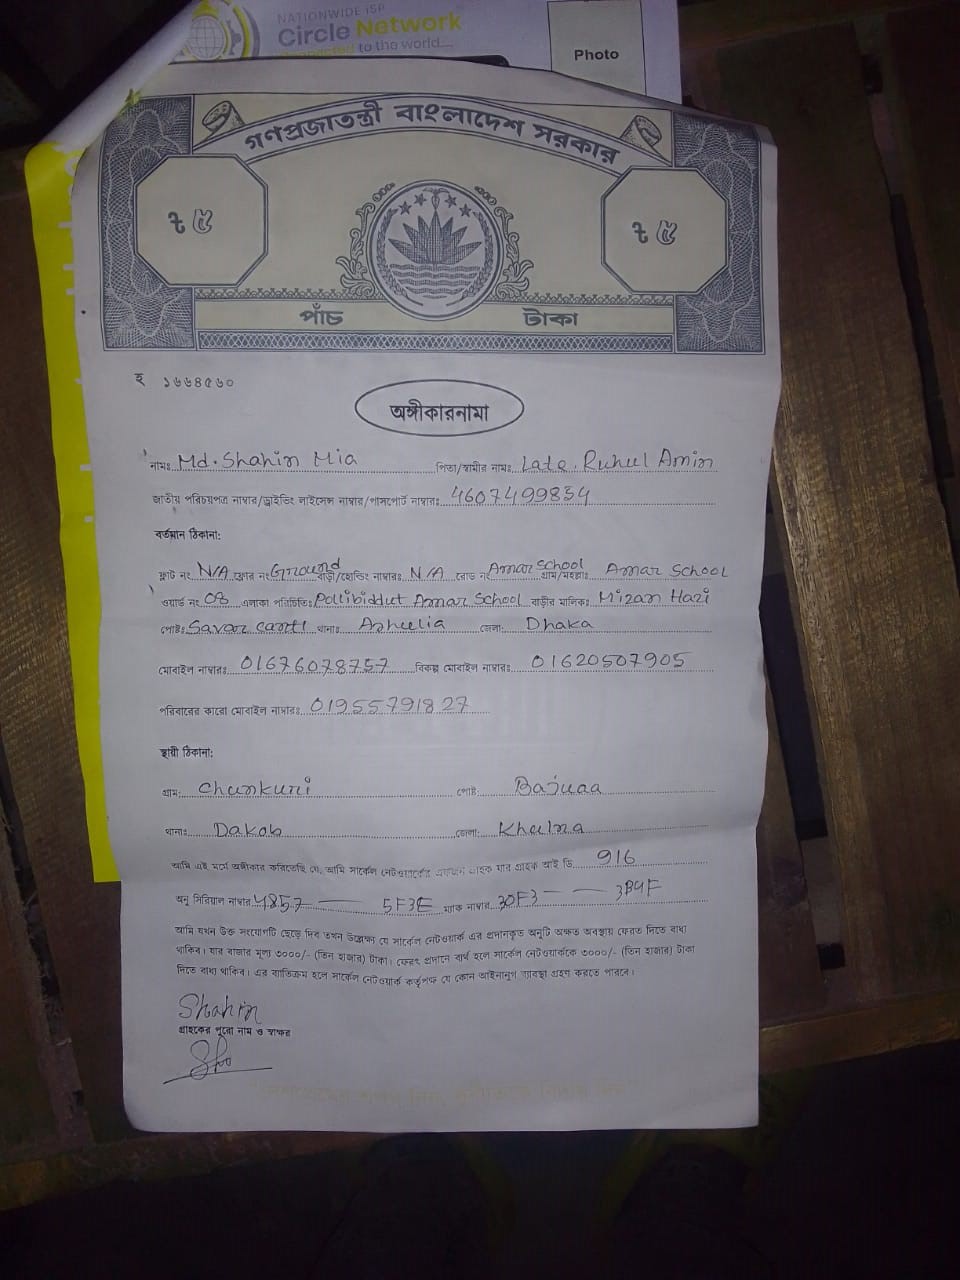 NATIONWIDE ISP
Circle Network
to the world....
Photo
গণপ্রজাতন্ত্রী বাংলাদেশ সরকার
৳ ৫ ৳ ৫
পাঁচ টাকা
হ ১৬৬৪৫৬০
অঙ্গীকারনামা
নামঃ Md. Shahin Mia পিতা/স্বামীর নামঃ Late. Ruhul Amin
জাতীয় পরিচয়পত্র নাম্বার/ড্রাইভিং লাইসেন্স নাম্বার/পাসপোর্ট নাম্বারঃ 4607499834
বর্তমান ঠিকানা:
ফ্লাট নং N/A ফ্লোর নং Ground বাড়ী/হোল্ডিং নাম্বারঃ N/A রোড নং Amar School গ্রাম/মহল্লাঃ Amar School
ওয়ার্ড নং 08 এলাকা পরিচিতিঃ Pollibiddut Amar School বাড়ীর মালিকঃ Mizan Hazi
পোষ্টঃ Savar cantt থানাঃ Ashulia জেলা: Dhaka
মোবাইল নাম্বারঃ 01676078757 বিকল্প মোবাইল নাম্বারঃ 01620507905
পরিবারের কারো মোবাইল নাম্বারঃ 01955791827
স্থায়ী ঠিকানা:
গ্রাম: Chunkuri পোষ্ট: Bajuaa
থানাঃ Dakob জেলা: Khulna
আমি এই মর্মে অঙ্গীকার করিতেছি যে, আমি সার্কেল নেটওয়ার্কের একজন গ্রাহক যার গ্রাহক আই ডি 916
অনু সিরিয়াল নাম্বার 4857 — 5F3E ম্যাক নাম্বার 30F3 — — 3B4F
আমি যখন উক্ত সংযোগটি ছেড়ে দিব তখন উল্লেক্ষ্য যে সার্কেল নেটওয়ার্ক এর প্রদানকৃত অনুটি অক্ষত অবস্থায় ফেরত দিতে বাধ্য
থাকিব। যার বাজার মূল্য ৩০০০/- (তিন হাজার) টাকা। ফেরৎ প্রদানে ব্যর্থ হলে সার্কেল নেটওয়ার্ককে ৩০০০/- (তিন হাজার) টাকা
দিতে বাধ্য থাকিব। এর ব্যতিক্রম হলে সার্কেল নেটওয়ার্ক কর্তৃপক্ষ যে কোন আইনানুগ ব্যবস্থা গ্রহণ করতে পারবে।
Shahin
গ্রাহকের পুরো নাম ও স্বাক্ষর